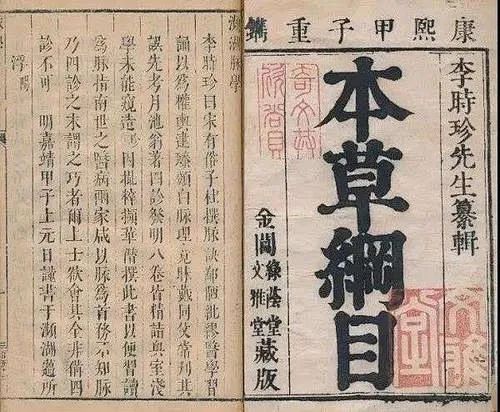 康熙甲子重鐫
李時珍先生纂輯
本草綱目
金閶
綠蔭堂
文雅堂
藏版
瀕湖脉學
李時珍曰宋有俗子杜撰脉訣鄙陋紕繆醫學習
誦以為權輿逮臻頒白脉理竟昧戴同父常刋其
誤先考月池翁著四診發明八卷皆精詣奧室淺
學未能窺造珍因撮粹擷華僭撰此書以便習讀
為脉指南世之醫病兩家咸以脉為首務不知脉
乃四診之末謂之巧者爾上士欲會其全非備四
診不可 明嘉靖甲子上元日謹書于瀕湖薖所
浮陽